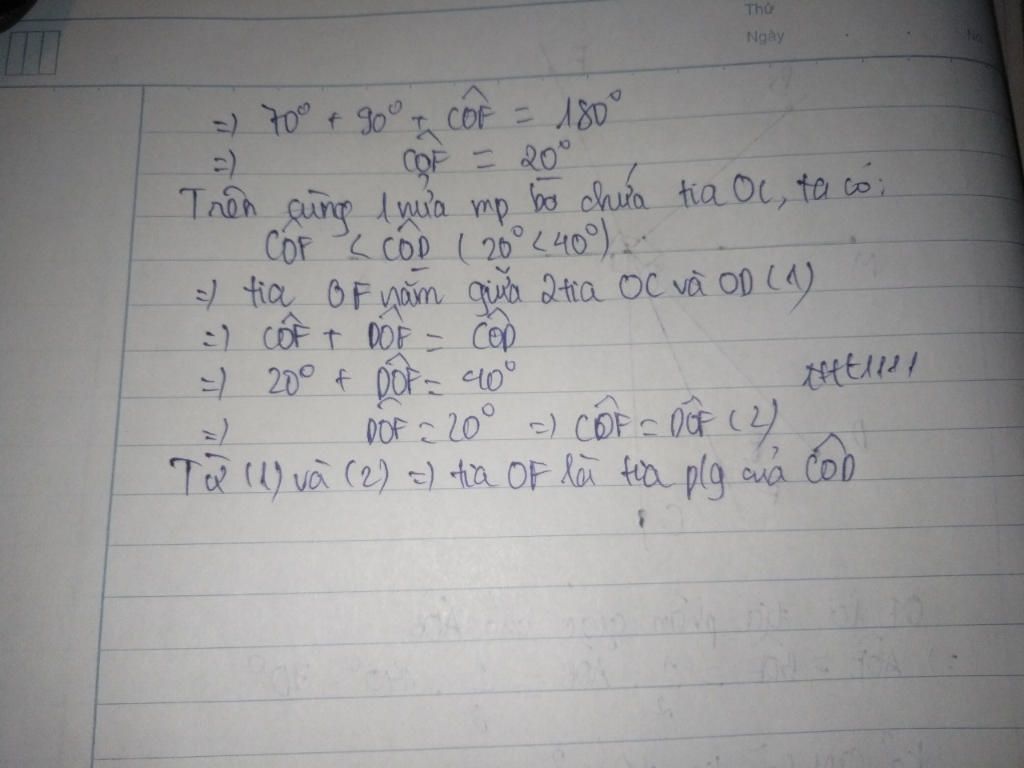 Thứ
Ngày
No
=> 70° + 90° + CÔF = 180°
=> CÔF = 20°
Trên cùng 1 nửa mp bờ chứa tia OC, ta có:
CÔF < CÔD (20° < 40°)
=> tia OF nằm giữa 2 tia OC và OD (1)
=> CÔF + DÔF = CÔD
=> 20° + DÔF = 40°
=> DÔF = 20° => CÔF = DÔF (2)
Từ (1) và (2) => tia OF là tia p/g của CÔD